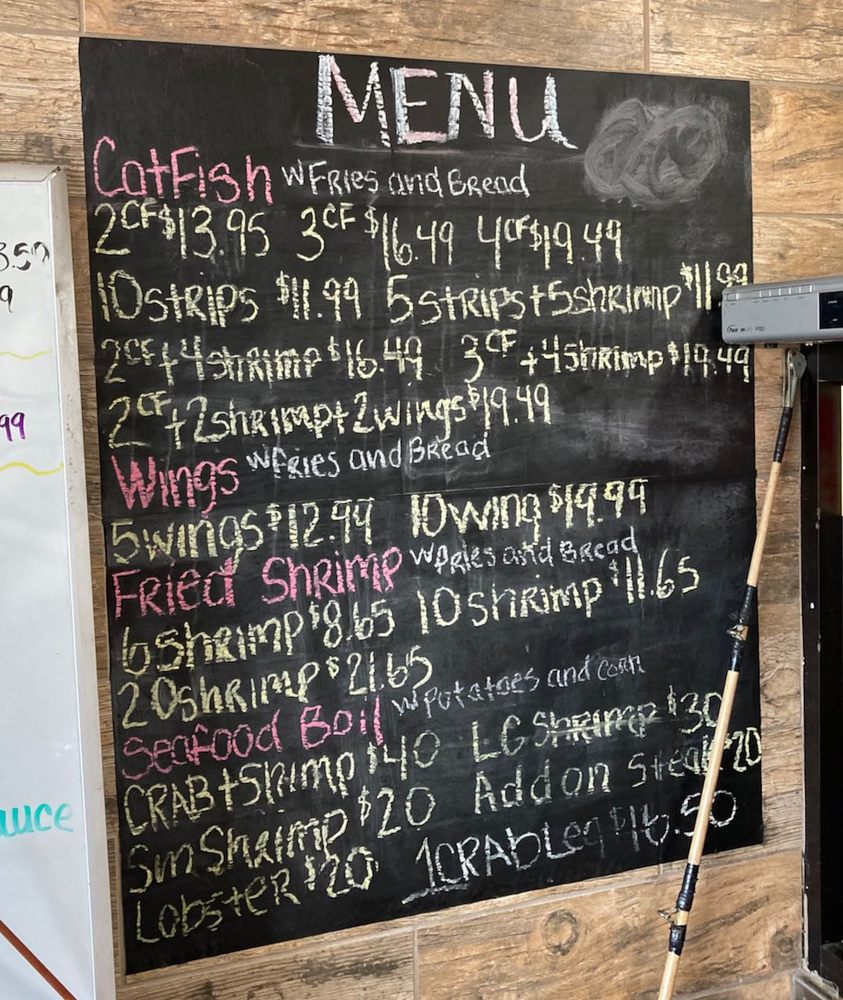 MENU
CatFish w Fries and Bread
2CF $13.95 3CF $16.49 4CF $19.49
10 strips $11.99 5 strips + 5 shrimp $11.99
2CF + 4 shrimp $16.49 3CF + 4 shrimp $19.49
2CF + 2 shrimp + 2 wings $19.49
Wings w Fries and Bread
5 wings $12.99 10 wing $19.99
Fried Shrimp w Fries and Bread
6 shrimp $8.65 10 shrimp $11.65
20 shrimp $21.65
Seafood Boil w Potatoes and corn
CRAB + Shrimp $40 LG Shrimp $30
Sm Shrimp $20 Add on Steak $20
Lobster $20 1 CRAb Leg $16.50
3.50
9
99
auce